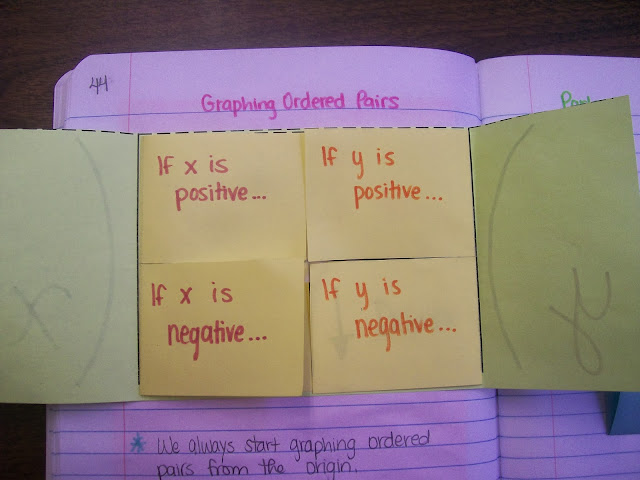 44
Graphing Ordered Pairs
If x is
positive...
If y is
positive...
If x is
negative...
If y is
negative...
( x
) y
* We always start graphing ordered
pairs from the origin.